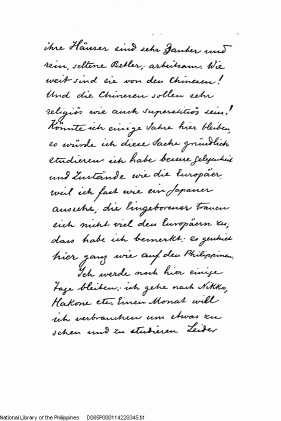 ihre Häuser sind sehr sauber und
rein, seltene Bettler, arbeitsam. Wie
weit sind sie von den Chinesen!
Und die Chinesen sollen sehr
religiös wie auch superstitiös sein!
Könnte ich einige Jahre hier bleiben,
so würde ich diese Sache gründlich
studieren ich habe bessere Gelegenheit
und Zustände wie die Europäer
weil ich fast wie ein Japaner
aussehe, die Eingeborener trauen
sich nicht viel den Europäern zu,
dass habe ich bemerkt: es
hier ganz wie auf den Philippinen.
Ich werde noch hier einige
Tage bleiben; ich gehe nach Nikko,
Hakone etc. Einen Monat will
ich verbrauchen um etwas zu
sehen und zu studieren Leider
National Library of the Philippines